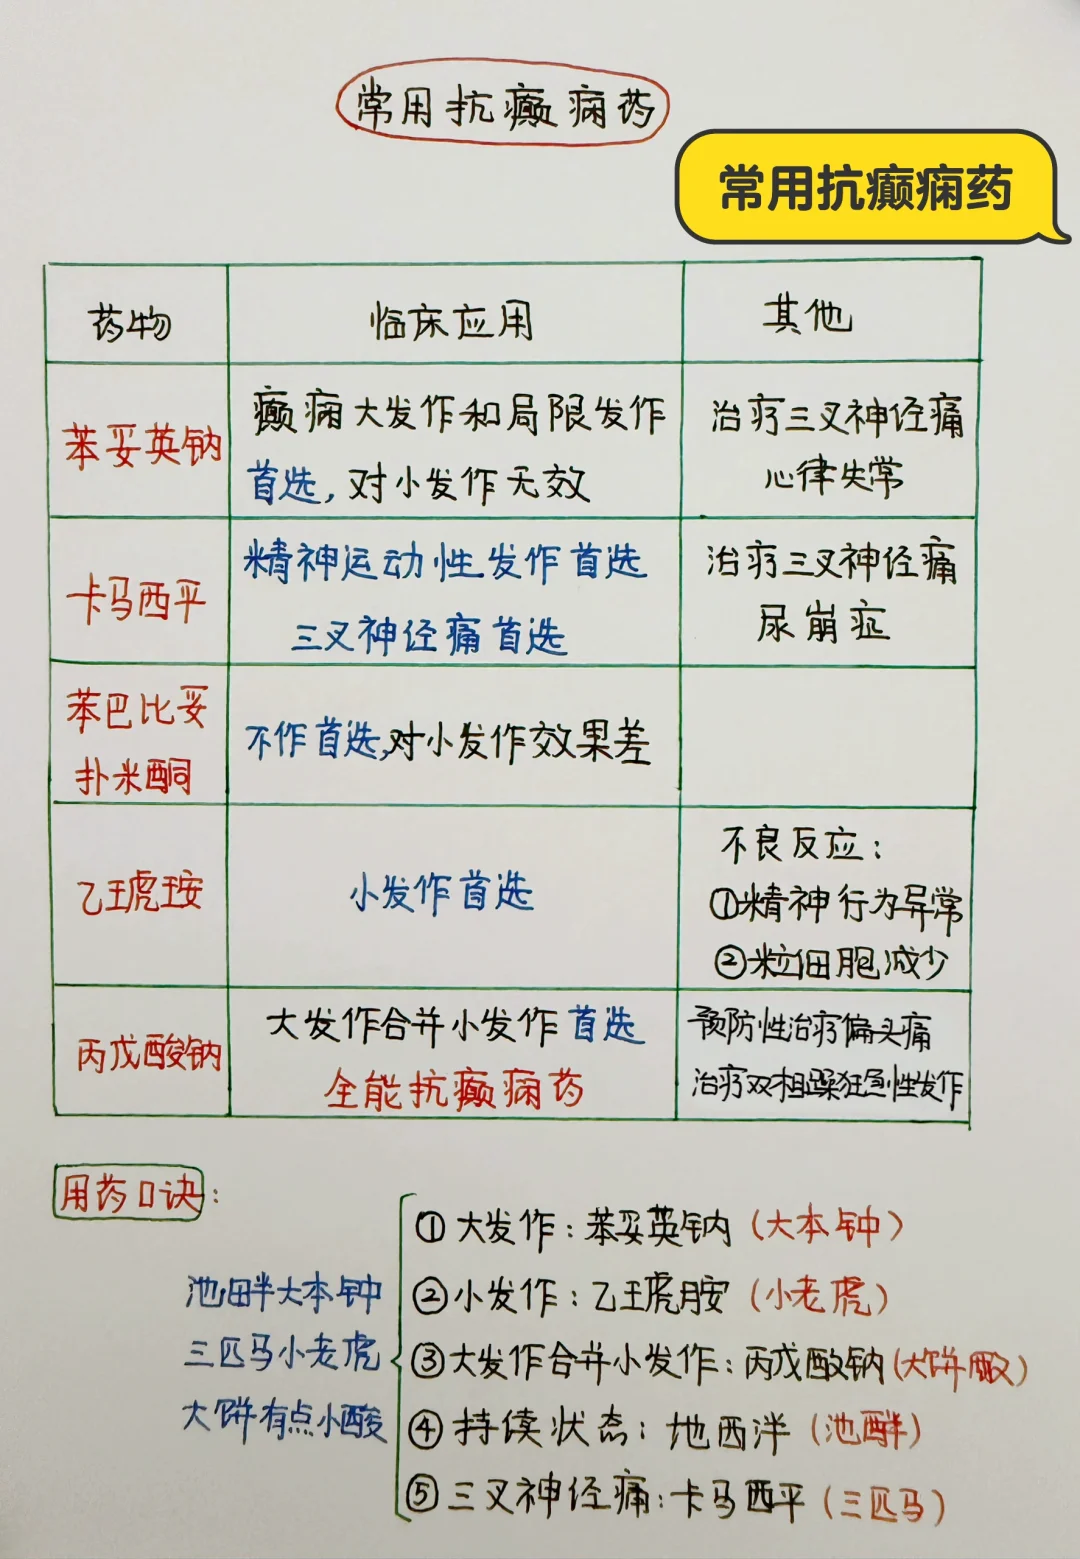 常用抗癫痫药
常用抗癫痫药
药物 临床应用 其他
苯妥英钠
癫痫大发作和局限发作
首选,对小发作无效
治疗三叉神经痛
心律失常
卡马西平
精神运动性发作首选
三叉神经痛首选
治疗三叉神经痛
尿崩症
苯巴比妥
扑米酮
不作首选,对小发作效果差
乙琥胺
小发作首选
不良反应:
①精神行为异常
②粒细胞减少
丙戊酸钠
大发作合并小发作首选
全能抗癫痫药
预防性治疗偏头痛
治疗双相躁狂急性发作
用药口诀:
池畔大本钟
三匹马小老虎
大饼有点小酸
①大发作:苯妥英钠(大本钟)
②小发作:乙琥胺(小老虎)
③大发作合并小发作:丙戊酸钠(大饼酸)
④持续状态:地西泮(池畔)
⑤三叉神经痛:卡马西平(三匹马)